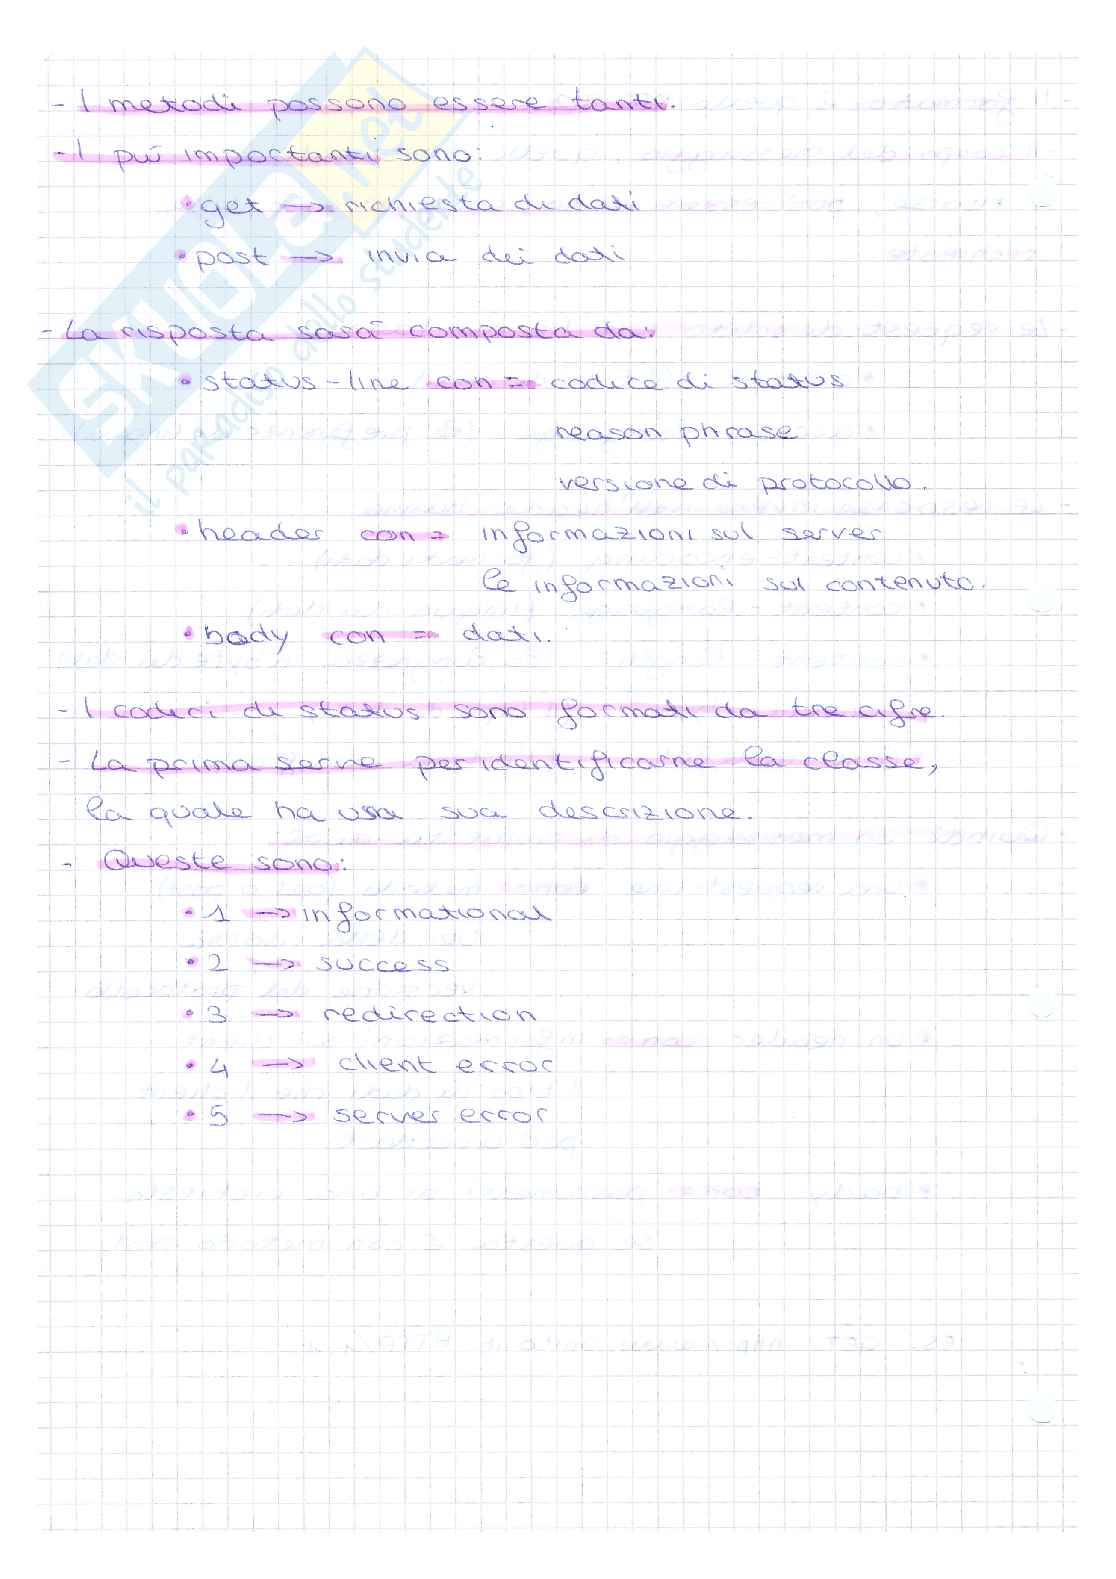 - I metodi possono essere tanti.
- I più importanti sono:
• get → richiesta di dati
• post → invia dei dati
- La risposta sarà composta da:
• status-line con = codice di status
reason phrase
versione di protocollo.
• header con = informazioni sul server
le informazioni sul contenuto.
• body con = dati.
- I codici di status sono formati da tre cifre.
- La prima serve per identificarne la classe,
la quale ha una sua descrizione.
- Queste sono:
• 1 → informational
• 2 → success
• 3 → redirection
• 4 → client error
• 5 → server error
SKUOLA.net
il paradiso dello studente